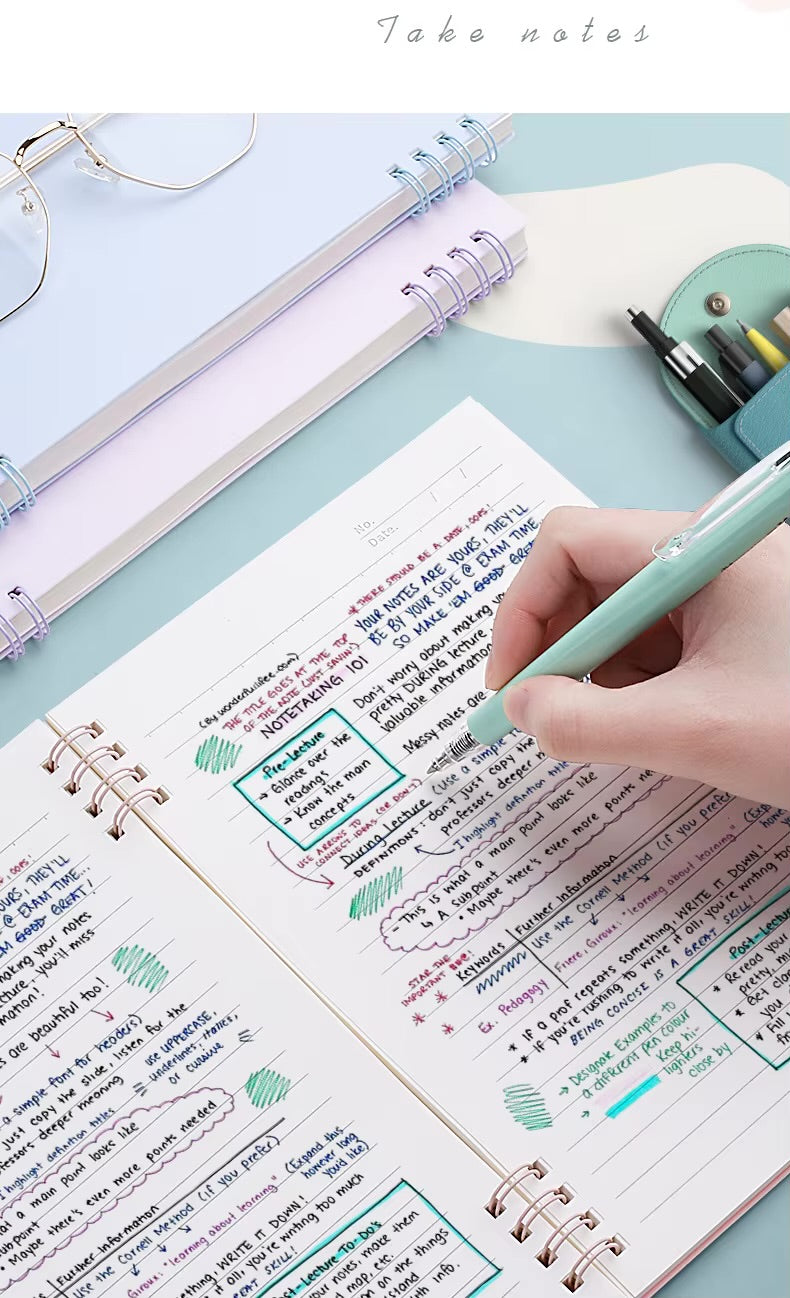 Take notes
No.
Date. / /
* THERE SHOULD BE A DATE, OOPS!
YOUR NOTES ARE YOURS, THEY'LL
BE BY YOUR SIDE @ EXAM TIME...
SO MAKE 'EM GOOD GREAT
(By wonderfulifee.com)
THE TITLE GOES AT THE TOP
OF THE NOTE (JUST SAYIN')
NOTETAKING 101
Don't worry about making
pretty DURING lecture,
valuable information
Messy notes are
Pre-Lecture
→ Glance over the
readings
→ Know the main
concepts
USE ARROWS TO
CONNECT IDEAS (OR DON'T)
During Lecture (use a simple
DEFINITIONS: don't just copy the
professors deeper
I highlight definition titles
- This is what a main point looks like
↳ A subpoint
• Maybe there's even more points
STAR THE
IMPORTANT ONE!
Keywords | Further Information
Use the Cornell Method (if you prefer)
Ex. Pedagogy
Friere, Giroux: "learning about learning"
* If a prof repeats something, WRITE IT DOWN!
* If you're rushing to write it all, you're writing too
BEING CONCISE IS A GREAT SKILL!
Post-Lecture
* Reread your
pretty,
* Get
you
* Fill
→ Designate Examples to
a different pen colour
→ Keep hi-
lighters
close by
OOPS!
YOURS, THEY'LL
@ EXAM TIME...
EM GOOD GREAT!
making your notes
lecture, you'll miss
mation!
s are beautiful too!
a simple font for headers)
just copy the slide, listen for the
fessors deeper meaning
I highlight definition titles
use UPPERCASE,
underlines, italics,
or cursive
at a main point looks like
subpoint
• Maybe there's even more points needed
Further Information
Use the Cornell Method (if you prefer)
Giroux: "learning about learning"
(Expand this
however long
you'd like)
something, WRITE IT DOWN!
it all, you're writing too much
GREAT SKILL!
Post-Lecture To-Do's
your notes, make them
map, etc.
on the things
stand
with info.